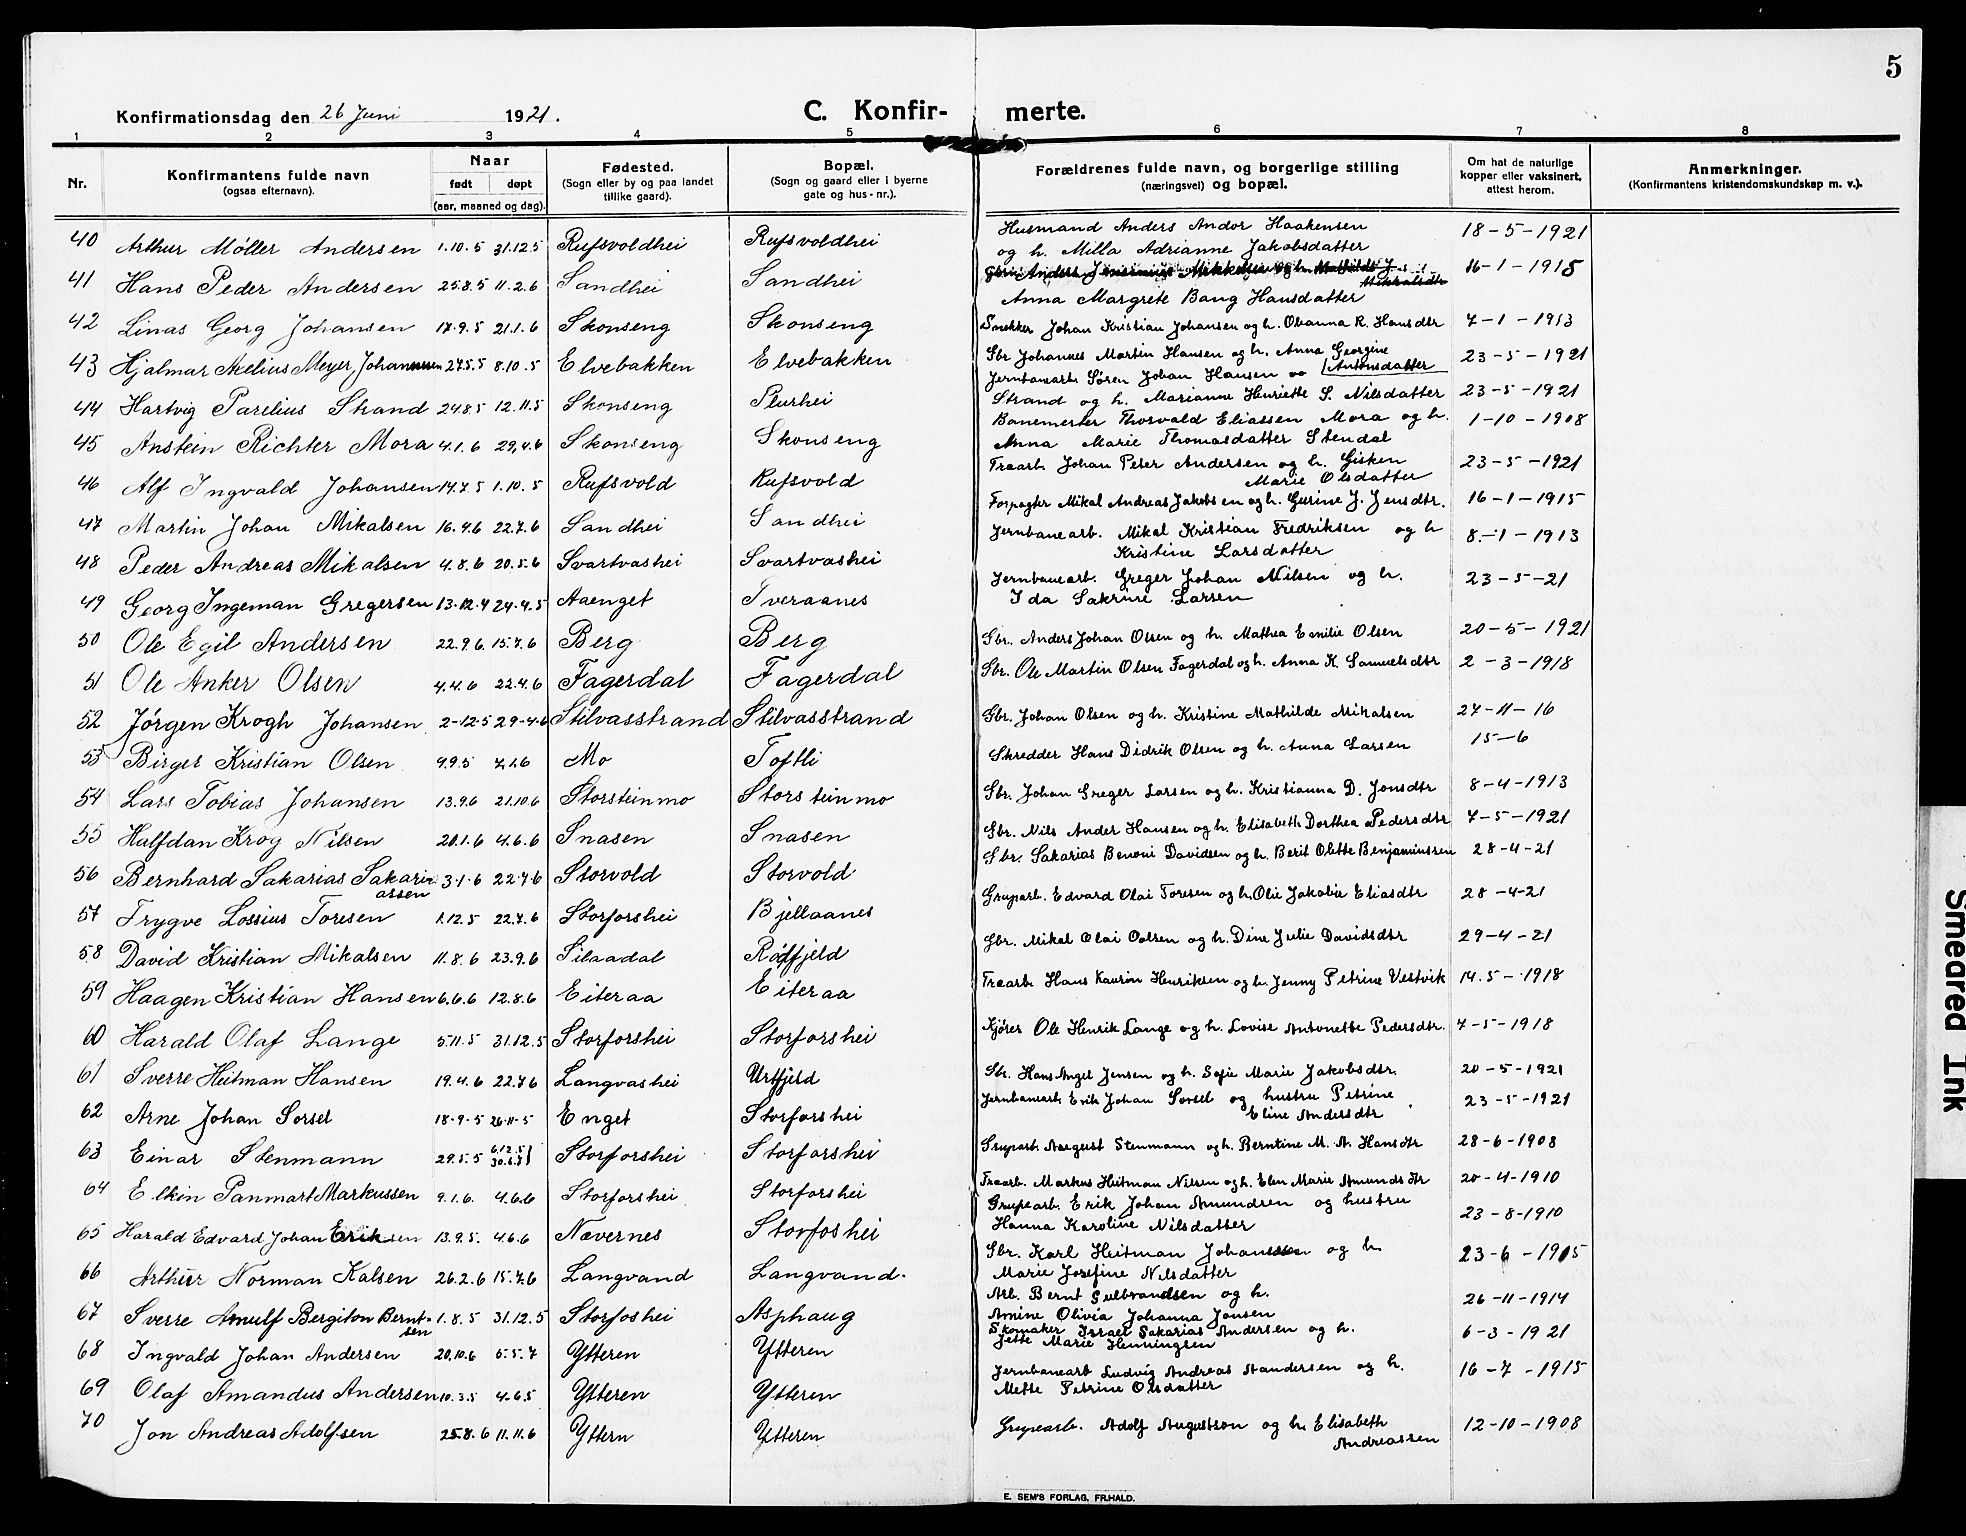 5
Konfirmationsdag den 26 Juni 1921.
C. Konfir- merte.
1 2 3 4 5 6 7 8
Nr.
Konfirmantens fulde navn
(ogsaa efternavn).
Naar
født døpt
(aar, maaned og dag).
Fødested.
(Sogn eller by og paa landet
tillike gaard).
Bopæl.
(Sogn og gaard eller i byerne
gate og hus-nr.).
Forældrenes fulde navn, og borgerlige stilling
(næringsvei) og bopæl.
Om hat de naturlige
kopper eller vaksinert,
attest herom.
Anmerkninger.
(Konfirmantens kristendomskundskap m. v.).
40 Arthur Møller Andersen 1.10.5 31.12.5 Rufsvoldhei Rufsvoldhei Husmand Anders Andor Haakensen 18-5-1921
og h. Milla Adrianne Jakobsdatter
41 Hans Peder Andersen 25.8.5 11.2.6 Sandhei Sandhei 16-1-1915
Anna Margrete Bang Hansdatter
42 Linas Georg Johansen 17.9.5 21.1.6 Skonseng Skonseng Snekker Johan Kristian Johansen og h. Oleanna R. Hansdtr 7-1-1913
43 Hjalmar Melius Meyer Johannessen 27.5.5 8.10.5 Elvebakken Elvebakken Gbr Johannes Martin Hansen og h. Anna Georgine 23-5-1921
Antonsdatter
44 Hartvig Parelius Strand 24.8.5 12.11.5 Skonseng Plurhei Jernbanearb. Søren Johan Hansen
Strand og h. Marianne Henriette S. Nilsdatter 23-5-1921
45 Anstein Richter Mora 4.1.6 29.4.6 Skonseng Skonseng Banemester Thorvald Eliassen Mora og h. 1-10-1908
Anna Marie Thomasdatter Stendal
46 Alf Ingvald Johansen 14.7.5 1.10.5 Rufsvold Rufsvold Traarb. Johan Peter Andersen og h. Gisken 23-5-1921
Marie Olsdatter
47 Martin Johan Mikalsen 16.4.6 22.7.6 Sandhei Sandhei Forpagter Mikal Andreas Jakobsen og h. Gurine J. Jensdtr. 16-1-1915
48 Peder Andreas Mikalsen 4.8.6 20.5.6 Svartvashei Svartvashei Jernbanearb. Mikal Kristian Fredriksen og h 8-1-1913
Kristine Larsdatter
49 Georg Ingeman Gregersen 13.12.4 24.4.5 Aaenget Tveraanes Jernbanearb. Greger Johan Nilsen og h. 23-5-21
Ida Sakrine Larsen
50 Ole Egil Andersen 22.9.6 15.7.6 Berg Berg Gbr. Anders Johan Olsen og h. Mathea Emilie Olsen 20-5-1921
51 Ole Anker Olsen 4.4.6 22.4.6 Fagerdal Fagerdal Gbr. Ole Martin Olsen Fagerdal og h. Anna K. Samuelsdtr 2-3-1918
52 Jørgen Krogh Johansen 2-12-5 29-4-6 Stilvasstrand Stilvasstrand Gbr. Johan Olsen og h. Kristine Mathilde Mikalsen 27-11-16
53 Birger Kristian Olsen 9.9.5 7.1.6 Mo Toftli Skredder Hans Didrik Olsen og h. Anna Larsen 15-6
54 Lars Tobias Johansen 13.9.6 21.10.6 Storsteinmo Storsteinmo Gbr. Johan Greger Larsen og h. Kristianna D. Jonsdtr 8-4-1913
55 Halfdan Krog Nilsen 20.1.6 4.6.6 Snasen Snasen Gbr. Nils Ander Hansen og h. Elisabeth Dorthea Pedersdtr 7-5-1921
56 Bernhard Sakarias Sakari- 3.1.6 22.7.6 Storvold Storvold Gbr. Sakarias Benoni Davidsen og h. Berit Olette Benjaminsen 28-4-21
assen
57 Trygve Lossius Toresen 1.12.5 22.7.6 Storforshei Bjellaanes Gruparb. Edvard Olai Toresen og h. Olie Jakobie Eliasdtr 28-4-21
58 David Kristian Mikalsen 11.8.6 23.9.6 Silaadal Rødfjeld Gbr. Mikal Olai Oolsen og h. Dine Julie Davidsdtr 29-4-21
59 Haagen Kristian Hansen 6.6.6 12.8.6 Eiteraa Eiteraa Traarb. Hans Kaurin Henriksen og h. Jenny Petrine Vestvik 14.5-1918
60 Harald Olaf Lange 5.11.5 31.12.5 Storforshei Storforshei Kjører Ole Henrik Lange og h. Lovise Antonette Pedersdtr. 7-5-1918
61 Sverre Heitman Hansen 19.4.6 22.7.6 Langvashei Urtfjeld Gbr. Hans Angel Jensen og h. Sofie Marie Jakobsdtr. 20-5-1921
62 Arne Johan Sorsel 18.9-5 26.11-5 Enget Storforshei Jernbanearb. Erik Johan Sorsel og hustru Petrine 23-5-1921
Eline Andersdtr
63 Einar Stenmann 29.5.5 6.12.5 Storforshei Storforshei Gruparb. August Stenmann og h. Berntine M. A. Hansdtr 28-6-1908
64 Elkin Panmart Markussen 9.1.6. 4.6.6 Storforshei Storforshei Traarb. Markus Heitman Nilsen og h. Elen Marie Amundsdtr 20-4-1910
65 Harald Edvard Johan Eriksen 13.9.5. 4.6.6 Nævernes Storfoshei Grupearb. Erik Johan Amundsen og hustru 23-8-1910
Hanna Karoline Nilsdatter
66 Arthur Norman Kalsen 26.2.6 15.7.6 Langvand Langvand. Gbr. Karl Heitman Johanssen og h. 23-6-1915
Marie Josefine Nilsdatter
67 Sverre Arnulf Bergiton Bernt- 1.8.5 31.12.5 Storfoshei Asphaug Arb. Bernt Gulbrandsen og h. 26-11-1914
sen Amine Olivia Johanna Jonsen
68 Ingvald Johan Andersen 20.10.6 5.5.7 Ytteren Ytteren Skomaker Israel Sakarias Andersen og h. 6-3-1921
Jette Marie Henningsen
69 Olaf Amandus Andersen 10.3.5 4.6.5 Ytteren Ytteren Jernbanearb Ludvig Andreas Aandersen og h. 16-7-1915
Mette Petrine Olsdatter
70 Jon Andreas Adolfsen 25.8.6 11.11.6 Yttern Ytteren Grupearb. Adolf Augustson og h. Elisabeth 12-10-1908
Andreassen
E. SEM'S FORLAG, FR.HALD.
Smeared Ink